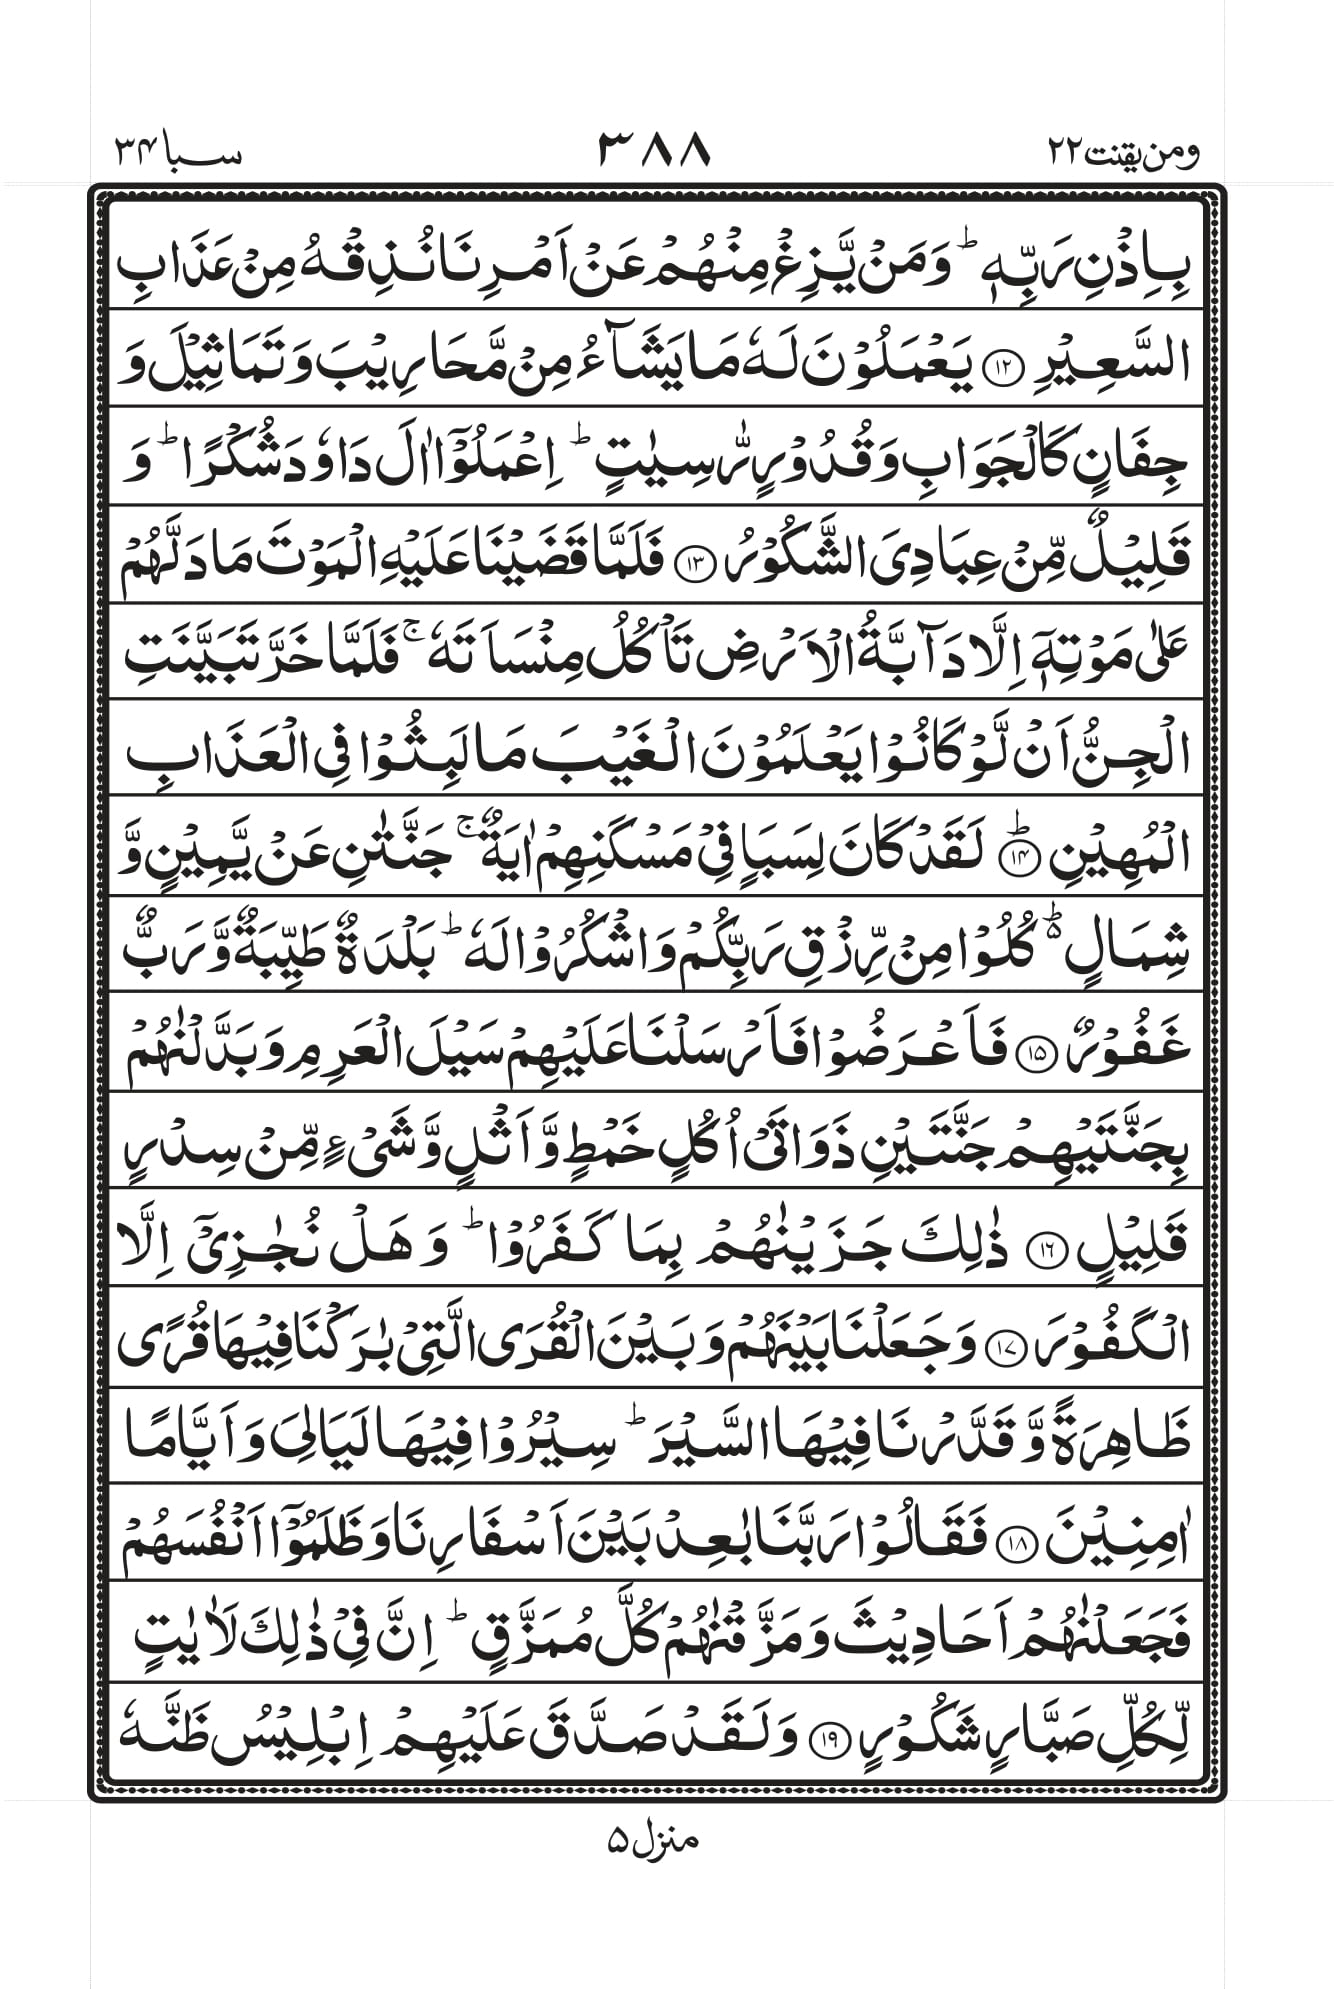 ومن یقنت ۲۲ ۳۸۸ سبا ۳۴
بِاِذۡنِ رَبِّهٖ ؕ وَمَنۡ يَّزِغۡ مِنۡهُمۡ عَنۡ اَمۡرِنَا نُذِقۡهُ مِنۡ عَذَابِ
السَّعِيۡرِ ﴿۱۲﴾ يَعۡمَلُوۡنَ لَهٗ مَا يَشَآءُ مِنۡ مَّحَارِيۡبَ وَتَمَاثِيۡلَ وَ
جِفَانٍ كَالۡجَوَابِ وَقُدُوۡرٍ رّٰسِيٰتٍ ؕ اِعۡمَلُوۡۤا اٰلَ دَاوٗدَ شُكۡرًا ؕ وَ
قَلِيۡلٌ مِّنۡ عِبَادِىَ الشَّكُوۡرُ ﴿۱۳﴾ فَلَمَّا قَضَيۡنَا عَلَيۡهِ الۡمَوۡتَ مَا دَلَّهُمۡ
عَلٰى مَوۡتِهٖۤ اِلَّا دَآبَّةُ الۡاَرۡضِ تَاۡكُلُ مِنۡسَاَتَهٗ ۚ فَلَمَّا خَرَّ تَبَيَّنَتِ
الۡجِنُّ اَنۡ لَّوۡ كَانُوۡا يَعۡلَمُوۡنَ الۡغَيۡبَ مَا لَبِثُوۡا فِى الۡعَذَابِ
الۡمُهِيۡنِ ؕ﴿۱۴﴾ لَقَدۡ كَانَ لِسَبَاٍ فِىۡ مَسۡكَنِهِمۡ اٰيَةٌ ۚ جَنَّتٰنِ عَنۡ يَّمِيۡنٍ وَّ
شِمَالٍ ۬ؕ كُلُوۡا مِنۡ رِّزۡقِ رَبِّكُمۡ وَاشۡكُرُوۡا لَهٗ ؕ بَلۡدَةٌ طَيِّبَةٌ وَّرَبٌّ
غَفُوۡرٌ ﴿۱۵﴾ فَاَعۡرَضُوۡا فَاَرۡسَلۡنَا عَلَيۡهِمۡ سَيۡلَ الۡعَرِمِ وَبَدَّلۡنٰهُمۡ
بِجَنَّتَيۡهِمۡ جَنَّتَيۡنِ ذَوَاتَىۡ اُكُلٍ خَمۡطٍ وَّاَثۡلٍ وَّشَىۡءٍ مِّنۡ سِدۡرٍ
قَلِيۡلٍ ﴿۱۶﴾ ذٰلِكَ جَزَيۡنٰهُمۡ بِمَا كَفَرُوۡا ؕ وَهَلۡ نُجٰزِىۡۤ اِلَّا
الۡكَفُوۡرَ ﴿۱۷﴾ وَجَعَلۡنَا بَيۡنَهُمۡ وَبَيۡنَ الۡقُرَى الَّتِىۡ بٰرَكۡنَا فِيۡهَا قُرًى
ظَاهِرَةً وَّقَدَّرۡنَا فِيۡهَا السَّيۡرَ ؕ سِيۡرُوۡا فِيۡهَا لَيَالِىَ وَاَيَّامًا
اٰمِنِيۡنَ ﴿۱۸﴾ فَقَالُوۡا رَبَّنَا بٰعِدۡ بَيۡنَ اَسۡفَارِنَا وَظَلَمُوۡۤا اَنۡفُسَهُمۡ
فَجَعَلۡنٰهُمۡ اَحَادِيۡثَ وَمَزَّقۡنٰهُمۡ كُلَّ مُمَزَّقٍ ؕ اِنَّ فِىۡ ذٰلِكَ لَاٰيٰتٍ
لِّكُلِّ صَبَّارٍ شَكُوۡرٍ ﴿۱۹﴾ وَلَقَدۡ صَدَّقَ عَلَيۡهِمۡ اِبۡلِيۡسُ ظَنَّهٗ
منزل ۵